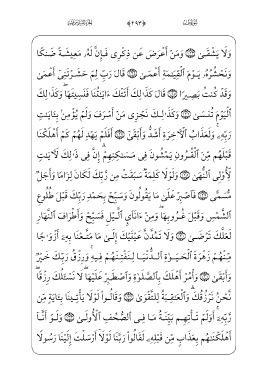 وَلَا يَشْقَىٰ ۝ وَمَنْ أَعْرَضَ عَن ذِكْرِى فَإِنَّ لَهُۥ مَعِيشَةً ضَنكًا
وَنَحْشُرُهُۥ يَوْمَ ٱلْقِيَٰمَةِ أَعْمَىٰ ۝ قَالَ رَبِّ لِمَ حَشَرْتَنِىٓ أَعْمَىٰ
وَقَدْ كُنتُ بَصِيرًا ۝ قَالَ كَذَٰلِكَ أَتَتْكَ ءَايَٰتُنَا فَنَسِيتَهَا وَكَذَٰلِكَ
ٱلْيَوْمَ تُنسَىٰ ۝ وَكَذَٰلِكَ نَجْزِى مَنْ أَسْرَفَ وَلَمْ يُؤْمِنۢ بِـَٔايَٰتِ
رَبِّهِۦ وَلَعَذَابُ ٱلْءَاخِرَةِ أَشَدُّ وَأَبْقَىٰٓ ۝ أَفَلَمْ يَهْدِ لَهُمْ كَمْ أَهْلَكْنَا
قَبْلَهُم مِّنَ ٱلْقُرُونِ يَمْشُونَ فِى مَسَٰكِنِهِمْ إِنَّ فِى ذَٰلِكَ لَءَايَٰتٍ
لِّأُو۟لِى ٱلنُّهَىٰ ۝ وَلَوْلَا كَلِمَةٌ سَبَقَتْ مِن رَّبِّكَ لَكَانَ لِزَامًا وَأَجَلٌ
مُّسَمًّى ۝ فَٱصْبِرْ عَلَىٰ مَا يَقُولُونَ وَسَبِّحْ بِحَمْدِ رَبِّكَ قَبْلَ طُلُوعِ
ٱلشَّمْسِ وَقَبْلَ غُرُوبِهَا وَمِنْ ءَانَآئِ ٱلَّيْلِ فَسَبِّحْ وَأَطْرَافَ ٱلنَّهَارِ
لَعَلَّكَ تَرْضَىٰ ۝ وَلَا تَمُدَّنَّ عَيْنَيْكَ إِلَىٰ مَا مَتَّعْنَا بِهِۦٓ أَزْوَٰجًا
مِّنْهُمْ زَهْرَةَ ٱلْحَيَوٰةِ ٱلدُّنْيَا لِنَفْتِنَهُمْ فِيهِ وَرِزْقُ رَبِّكَ خَيْرٌ
وَأَبْقَىٰ ۝ وَأْمُرْ أَهْلَكَ بِٱلصَّلَوٰةِ وَٱصْطَبِرْ عَلَيْهَا لَا نَسْـَٔلُكَ رِزْقًا
نَّحْنُ نَرْزُقُكَ وَٱلْعَٰقِبَةُ لِلتَّقْوَىٰ ۝ وَقَالُوا۟ لَوْلَا يَأْتِينَا بِـَٔايَةٍ مِّن
رَّبِّهِۦٓ أَوَلَمْ تَأْتِهِم بَيِّنَةُ مَا فِى ٱلصُّحُفِ ٱلْأُولَىٰ ۝ وَلَوْ أَنَّآ
أَهْلَكْنَٰهُم بِعَذَابٍ مِّن قَبْلِهِۦ لَقَالُوا۟ رَبَّنَا لَوْلَآ أَرْسَلْتَ إِلَيْنَا رَسُولًا